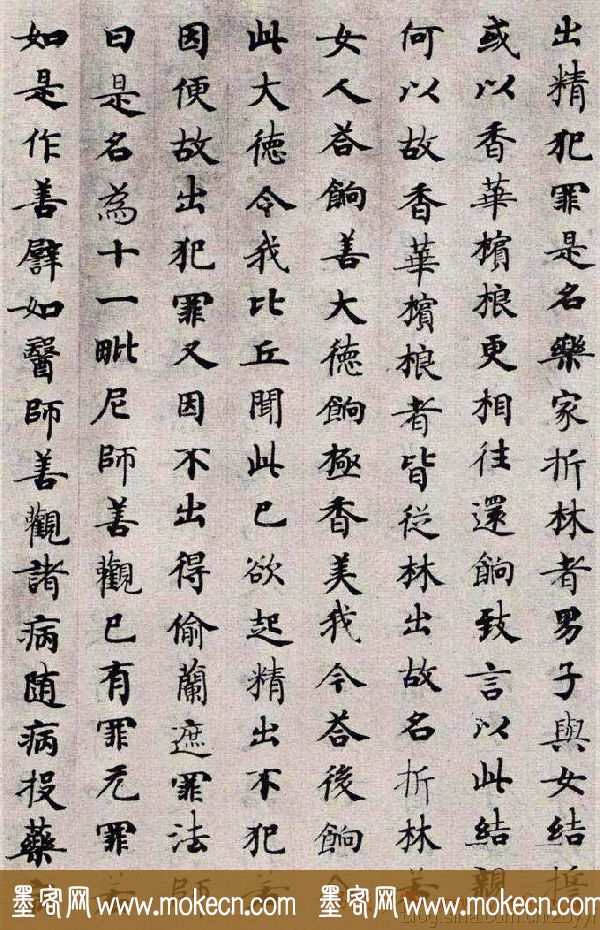 出精犯罪是名樂家折林者男子與女結
或以香華檳桹更相往還餉致言以此結親
何以故香華檳桹者皆從林出故名折林若
女人荅餉善大德餉極香美我今荅後餉令
此大德令我比丘聞此已欲起精出不犯
因便故出犯罪又因不出得偷蘭遮罪法師
曰是名為十一毗尼師善觀已有罪无罪
如是作善譬如醫師善觀諸病随病投藥
墨客网 www.mokecn.com 墨客网 www.mokecn.com